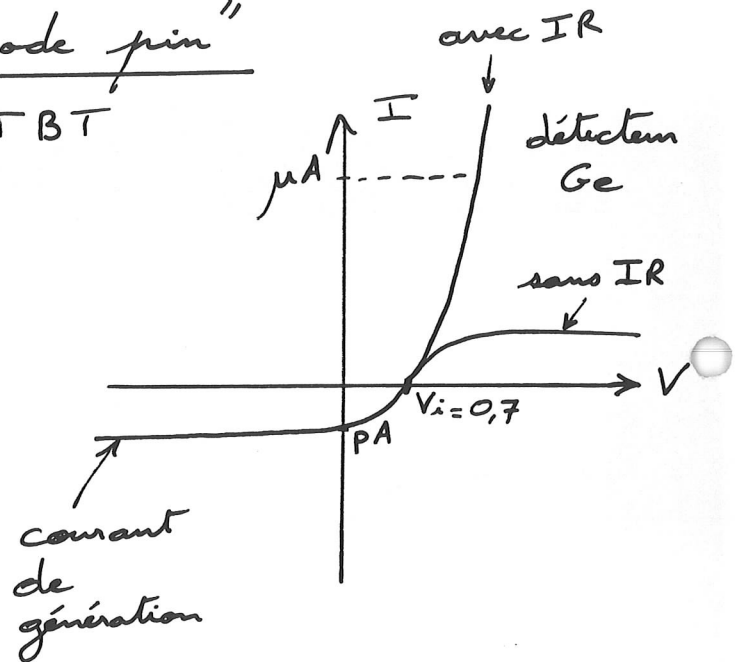 ode pin"
TBT
avec IR
I
détecteur
Ge
μA
sans IR
V
Vi=0,7
pA
courant
de
génération